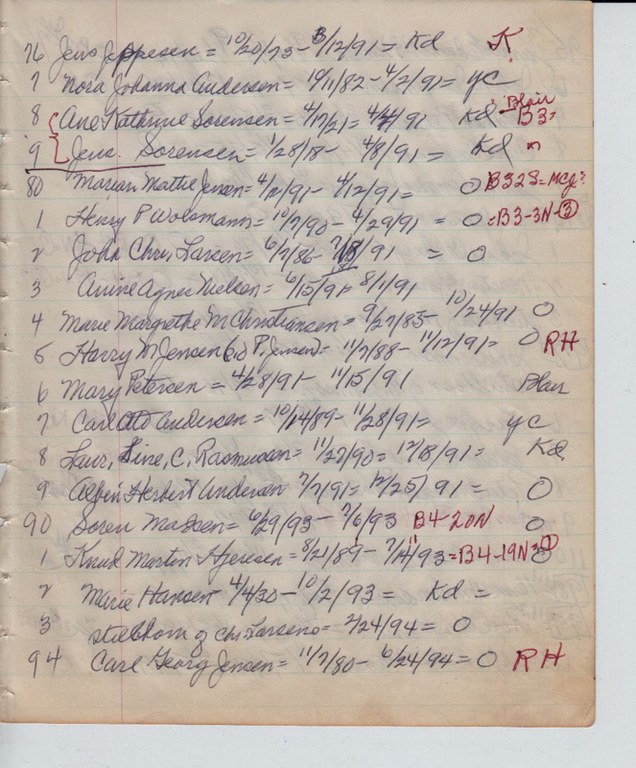 76 Jens Jeppesen = 10/20/73 - 3/12/91 = Kd K
7 Nora Johanna Andersen = 10/11/82 - 4/2/91 = yc
8 Ane Kathrine Sorensen = 4/17/21 = 4/4/91 Kd Blair B3=
9 Jens Sorensen = 1/28/18 - 4/8/91 = Kd "
80 Marian Mattie Jensen = 4/2/91 - 4/12/91 = O B32S = McJ?
1 Henry P Wolsmann = 10/7/90 - 4/29/91 = O = B3-3N-3
2 John Chr, Larsen = 6/7/86 - 7/18/91 = O
3 Anine Agnes Nielsen = 6/15/91 - 8/1/91
4 Marie Margrethe M Christiansen = 9/27/85 - 10/24/91 O
5 Harry M Jensen (3d P. Jensen) = 11/7/88 - 11/12/91 = O RH
6 Mary Petersen = 4/28/91 - 11/15/91 Blair
7 Carl Otto Andersen = 10/14/89 - 11/28/91 = yc
8 Laur, Sine, C, Rasmussen = 11/27/90 = 12/18/91 = Kd
9 Albin Herbert Andersen 7/7/91 = 12/25/91 = O
90 Soren Madsen = 6/29/93 - 7/6/93 B4-20N O
1 Knud Morten = 8/21/89 - 7/14/93 = B4-19N
2 Marie Hansen 4/4/30 - 10/2/93 = Kd =
3 stilbhorn of Chr Larsens = 2/24/94 = O
94 Carl Georg Jensen = 11/7/80 - 6/24/94 = O RH